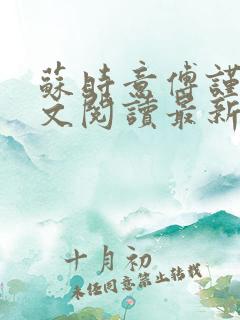 蘇時意傅謹
文閱讀最新
十月初
未經同意禁止轉載